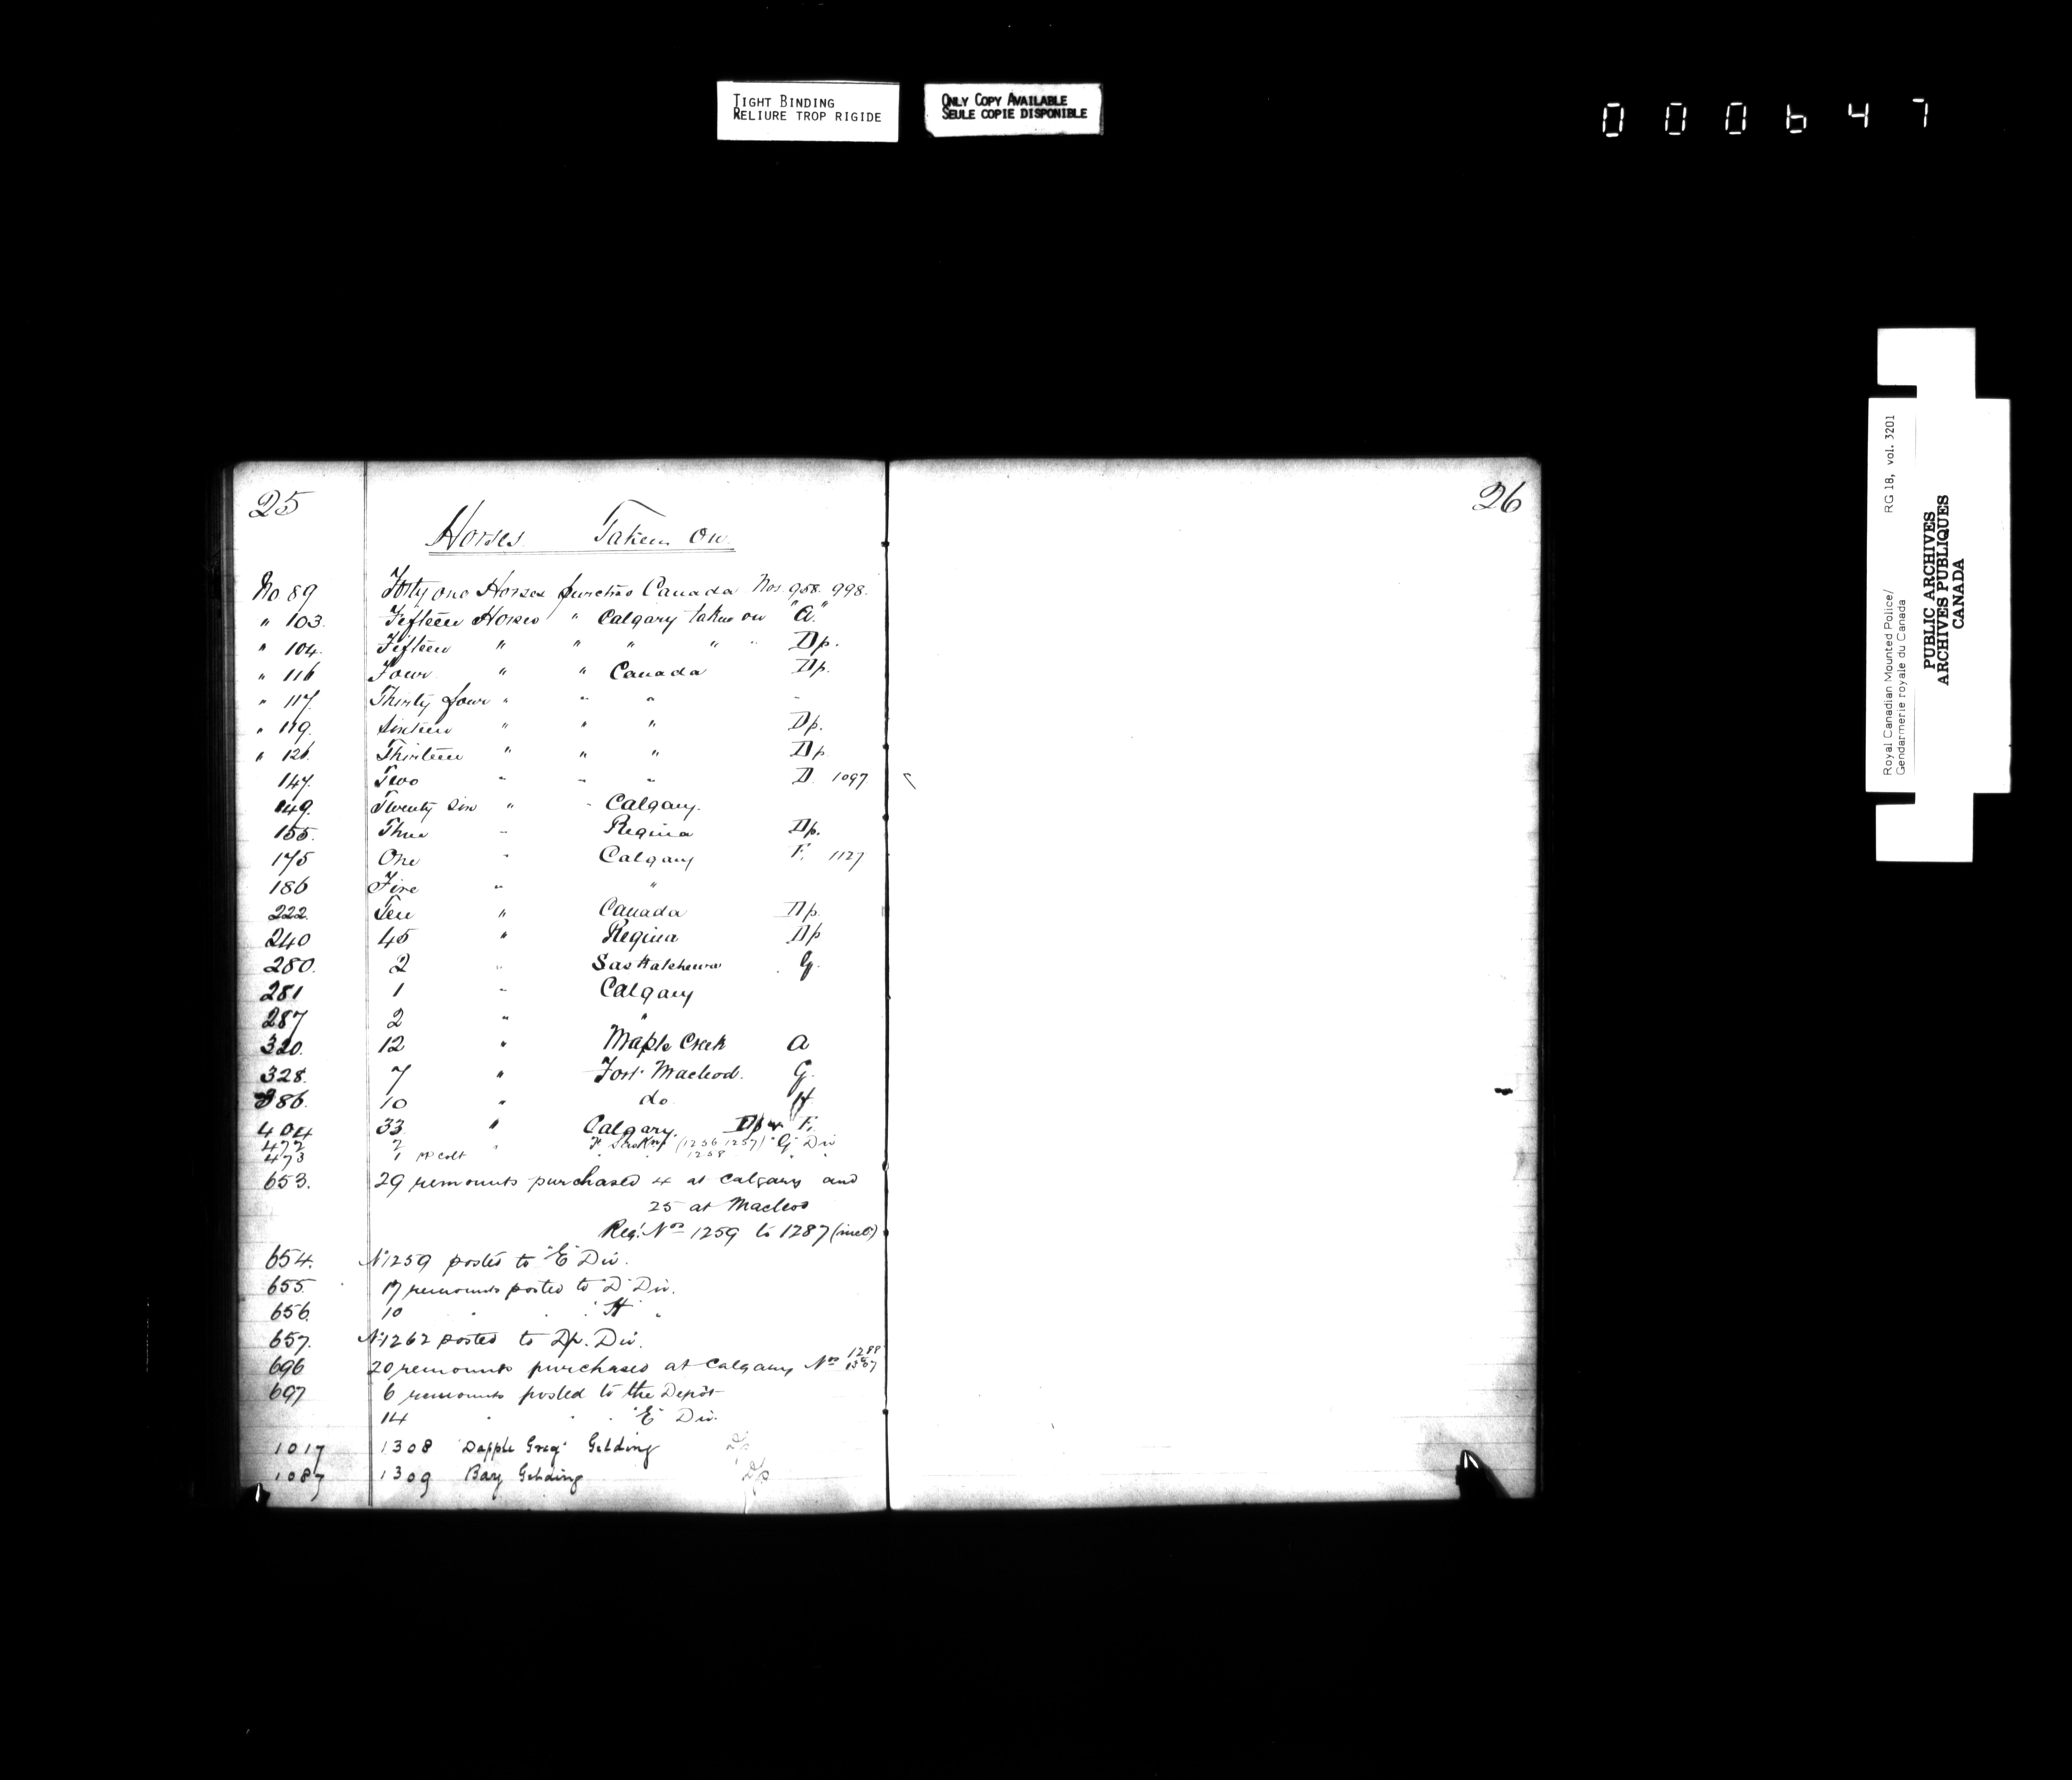 TIGHT BINDING
RELIURE TROP RIGIDE
ONLY COPY AVAILABLE
SEULE COPIE DISPONIBLE
000647
25
Horses Taken on
No 89 Forty one Horses purchas Canada Nos 958. 998.
" 103. Fifteen Horses " Calgary taken on "A."
" 104. Fifteen " " " " " Dp.
" 116 Four " " Canada Dp.
" 117. Thirty four " " " "
" 119. Sixteen " " " Dp.
" 126. Thirteen " " " Dp
147. Two " " " D. 1097
149. Twenty Six " " Calgary.
155. Three " Regina Dp.
175 One " Calgary F. 1127
186 Five " "
222. Ten " Canada Dp.
240 45 " Regina Dp
280. 2 " Saskatchewan G.
281 1 " Calgary
287 2 " "
320. 12 " Maple Creek A
328. 7 " Fort Macleod. G.
386. 10 " do H
404 33 " Calgary. Dp F.
472 2 " (1256 1257) "G" Div
473 1 colt " " 1258 " "
653. 29 remounts purchased 4 at Calgary and
25 at Macleod
Reg. Nos 1259 to 1287 (incl)
654. No 1259 posted to "E" Div.
655. 17 remounts posted to "D" Div.
656. 10 " " "H" "
657. No 1262 posted to Dp. Div.
696 20 remounts purchased at Calgary Nos 1288 1307
697 6 remounts posted to the Depot
14 " " " "E" Div.
1017 1308 Dapple Grey Gelding Dp
1087 1309 Bay Gelding Dp
26
Royal Canadian Mounted Police/ RG 18, vol. 3201
Gendarmerie royale du Canada
PUBLIC ARCHIVES
ARCHIVES PUBLIQUES
CANADA